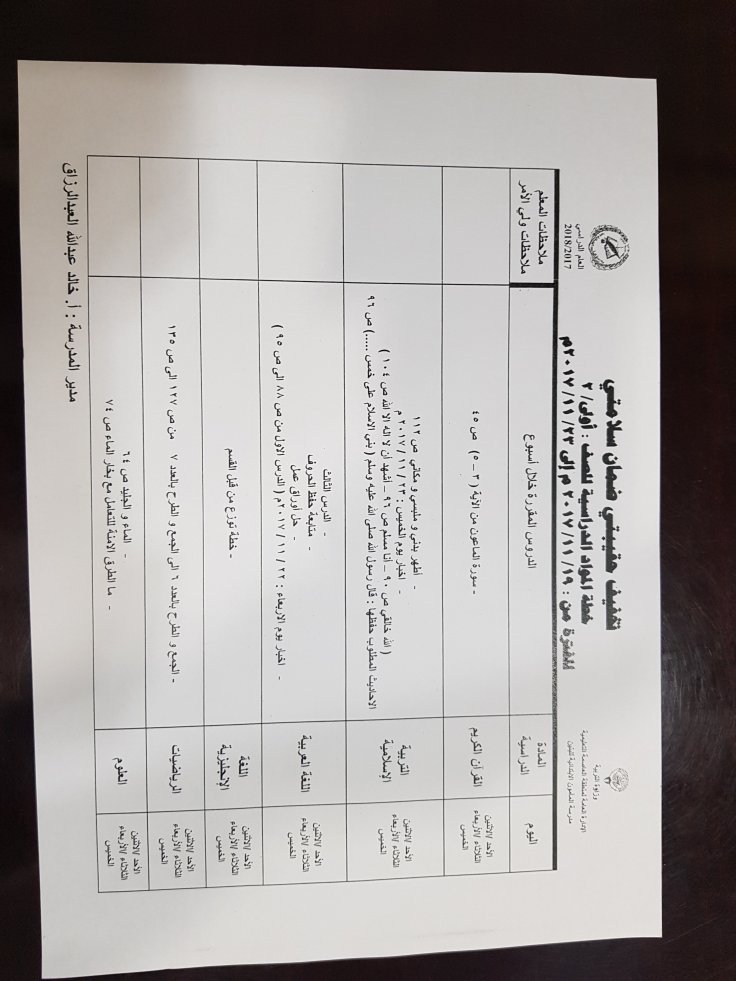 وزارة التربية
الإدارة العامة لمنطقة العاصمة التعليمية
مدرسة المأمون الابتدائية للبنين
تخفيف حقيبتي ضمان سلامتي
خطة المواد الدراسية للصف : أولى/ ٢
للفترة من : ١٩/ ١١/ ٢٠١٧ م إلى ٢٣/ ١١/ ٢٠١٧م
العام الدراسي
2018/2017
اليوم
المادة الدراسية
الدروس المقررة خلال أسبوع :
ملاحظات المعلم
ملاحظات ولي الأمر
الأحد /الاثنين
الثلاثاء /الأربعاء
الخميس
القرآن الكريم
- سورة الماعون من الآية (٣ – ٥) ص ٤٥
الأحد /الاثنين
الثلاثاء /الأربعاء
الخميس
التربية الإسلامية
- أطهر بدني و ملبسي و مكاني ص ١١٢
- اخبار يوم الخميس : ٢٣/ ١١/ ٢٠١٧ م
( الله خالقي ص ٩٠ – أنا مسلم ص ٩٦ – أشهد أن لا اله الا الله ص ١٠٤ )
الاحاديث المطلوب حفظها : قال رسول الله صلى الله عليه وسلم ( بني الاسلام على خمس .....) ص ٩٦
الأحد /الاثنين
الثلاثاء /الأربعاء
الخميس
اللغة العربية
- الدرس الثالث
- متابعة حفظ الحروف
- حل أوراق عمل
- اخبار يوم الاربعاء : ٢٢/ ١١/ ٢٠١٧م ( الدرس الاول من ص ٨٨ الى ص ٩٥ )
الأحد /الاثنين
الثلاثاء /الأربعاء
الخميس
اللغة الإنجليزية
- خطة توزع من قبل القسم
الأحد /الاثنين
الثلاثاء /الأربعاء
الخميس
الرياضيات
- الجمع و الطرح بالعدد ٦ الى الجمع و الطرح بالعدد ٧ من ص ١٢٧ الى ص ١٣٥
الأحد /الاثنين
الثلاثاء /الأربعاء
الخميس
العلوم
- الماء و الجليد ص ٦٤
- ما الطرق الامنة للتعامل مع بخار الماء ص ٧٤
مدير المدرسة : أ. خالد عبدالله العبدالرزاق